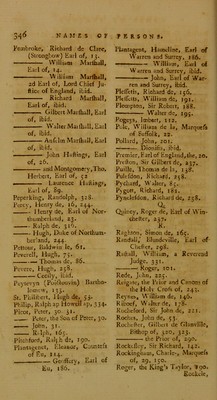 346 NAMES OF PERSONS.
Pembroke, Richard de Clare,
(Strongbow) Earl of, 15.
—— William Marshall,
Earl of, 14.
—— William Marshall,
2d Earl of, Lord Chief Ju-
stice of England, ibid.
—— Richard Marshall,
Earl of, ibid.
—— Gilbert Marshall, Earl
of, ibid.
—— Walter Marshall, Earl
of, ibid.
—— Anselm Marshall, Earl
of, ibid.
—— John Hastings, Earl
of, 26.
—— and Montgomery, Tho.
Herbert, Earl of, 52
—— Laurence Hastings,
Earl of, 89.
Peperking, Randolph, 318.
Percy, Henry de, 16, 244.
—— Henry de, Earl of Nor-
thumberland, 43.
—— Ralph de, 316.
—— Hugh, Duke of Northum-
berland, 244.
Pettour, Baldwin le, 61.
Peverell, Hugh, 75.
—— Thomas de, 86.
Pevere, Hugh, 238.
—— Cecily, ibid.
Peytevyn (Poithovin) Bartho-
lomew, 133.
St. Philibert, Hugh de, 53.
Phillip, Ralph ap Howell ap, 334.
Picot, Peter, 30. 31.
—— Peter, the Son of Peter, 30.
—— John, 31.
—— Ralph, 165.
Pincheford, Ralph de, 190.
Plantagenet, Eleanor, Countess
of Eu, 214.
—— Geoffery, Earl of
Eu, 186.
Plantagent, Hameline, Earl of
Warren and Surrey, 186.
—— William, Earl of
Warren and Surrey, ibid.
—— John, Earl of War-
ren and Surrey, ibid.
Plessetis, Richard de, 196.
Plessetis, William de, 191.
Plompton, Sir Robert, 188.
—— Walter de, 295.
Pogeys, Imbert, 112.
Pole, William de la, Marquess
of Suffolk, 22.
Pollard, John, 201.
—— Dionisia, ibid.
Premier, Earl of England, the, 20.
Preston, Sir Gilbert de, 257.
Puille, Thomas de la, 138.
Pulesdon, Richard, 258.
Pychard, Walter, 85.
Pygot, Richard, 181.
Pynckesdon, Richard de, 258.
Q
Quincy, Roger de, Earl of Win-
chester, 257.
R.
Raghton, Simon de, 165.
Randall, Blundeville, Earl of
Chester, 196.
Rastall, William, a Reverend
Judge, 331.
—— Roger, 201.
Rede, John, 225.
Reigate, the Prior and Canons of
the Holy Cross of, 143.
Reynes, William de, 146.
Riboef, Walter de, 178.
Rocheford, Sir John de, 221.
Roches, John de, 53.
Rochester, Gilbert de Glanville,
Bishop of, 320, 323.
—— the Prior of, 290.
Rockesley, Sir Richard, 142.
Rockingham, Charles, Marquess
of, 29, 190.
Roger, the King's Taylor, 290.